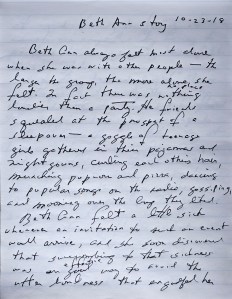 Beth Ann story 10-23-18
Beth Ann always felt most alone
when she was with other people — the
larger the group, the more alone she
felt. In fact there was no place
lonelier than a party. Her friends
squealed at the prospect of
sleepovers — a gaggle of teenage
girls gathered in their pajamas and
nightgowns, curling each others hair,
munching popcorn and pizza, dancing
to popular songs on the radio, gossiping,
and mooning over the boys they liked.
Beth Ann felt a little sick
whenever an invitation to such an event
would arrive, and she soon discovered
that surrendering to that sickness
was an effective way to avoid the
utter loneliness that engulfed her